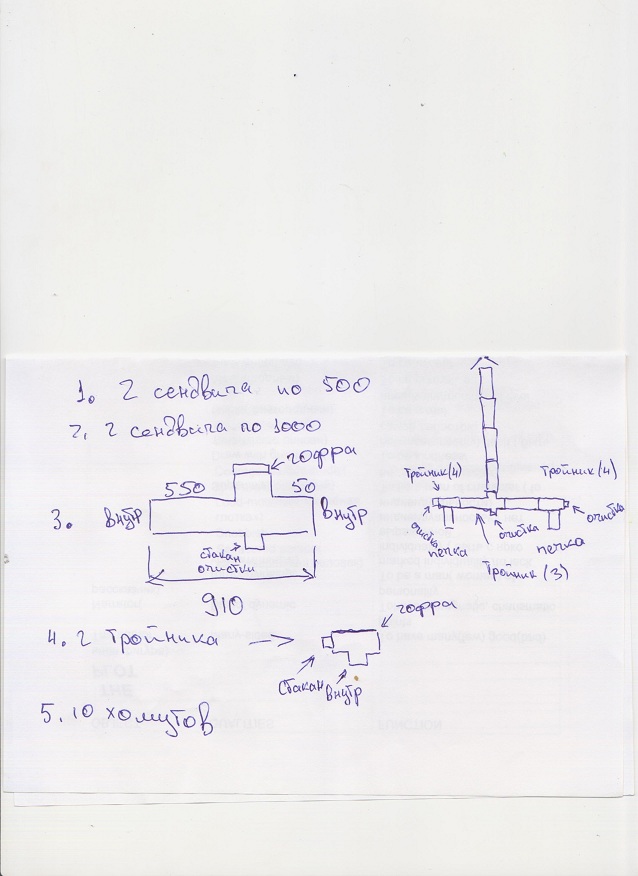 1. 2 сендвича по 500
2. 2 сендвича по 1000
гофра
550
50
3.
внутр
внутр
стакан
очистки
910
4. 2 тройника
гофра
стакан
внутр
5. 10 хомутов
тройник(4)
тройник(4)
очистка
печка
очистка
печка
очистка
Тройник (3)